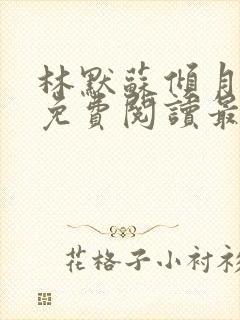 林默蘇傾月
免費閱讀最
花格子小衬衫